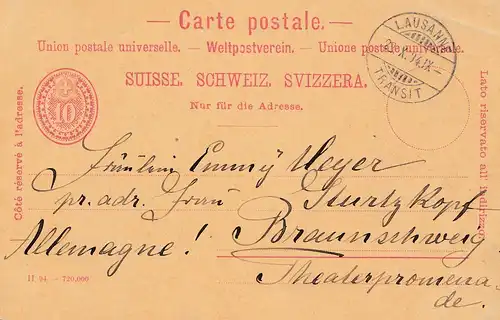 — Carte postale. —
Union postale universelle. — Weltpostverein. — Unione postale universale.
SUISSE. SCHWEIZ. SVIZZERA.
Nur für die Adresse.
Côté réservé à l'adresse.
Lato riservato all' indirizzo.
10
LAUSANNE
TRANSIT
Fräulein Emmÿ Meyer
pr. adr. Frau Sturtzkopf
Allemagne! Braunschweig
Theaterpromena-
de.
II 94. — 720,000